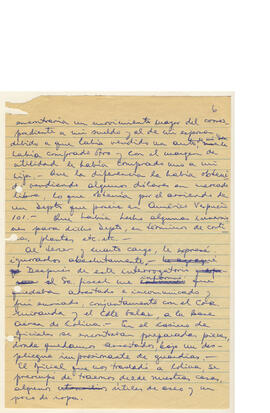 6
encontraría un movimiento mayor del corres
pondiente a mi sueldo y al de mi esposa
debido a que había vendido un auto,
había comprado otro y con el margen de
utilidad le había comprado uno a mi
hijo.- Que la diferencia la había obteni
do vendiendo algunos dólares en mercado
libre lo que obtenía por el arriendo de
un Depto que poseía en Américo Vespucio
101.- Que había hecho algunas inversio
nes para dicho Depto, en términos de corti
nas, plantes, etc. etc. -
Al tercer y cuarto cargo, le expresé
ignorarlos absolutamente.-
Después de este interrogatorio
el Sr. Fiscal me que
quedaba arrestado e incomunicado y
fui enviado, conjuntamente con el Cdte
Miranda y el Cdte Galaz, a la Base
Aérea de Colina.- En el Casino de
Oficiales se encontraban preparadas piezas,
donde quedamos arrestados, bajo un des-
pliegue impresionante de guardias.-
El oficial que nos trasladó a Colina se
preocupó de traernos desde nuestras casas,
algunos útiles de aseo y un
poco de ropa.